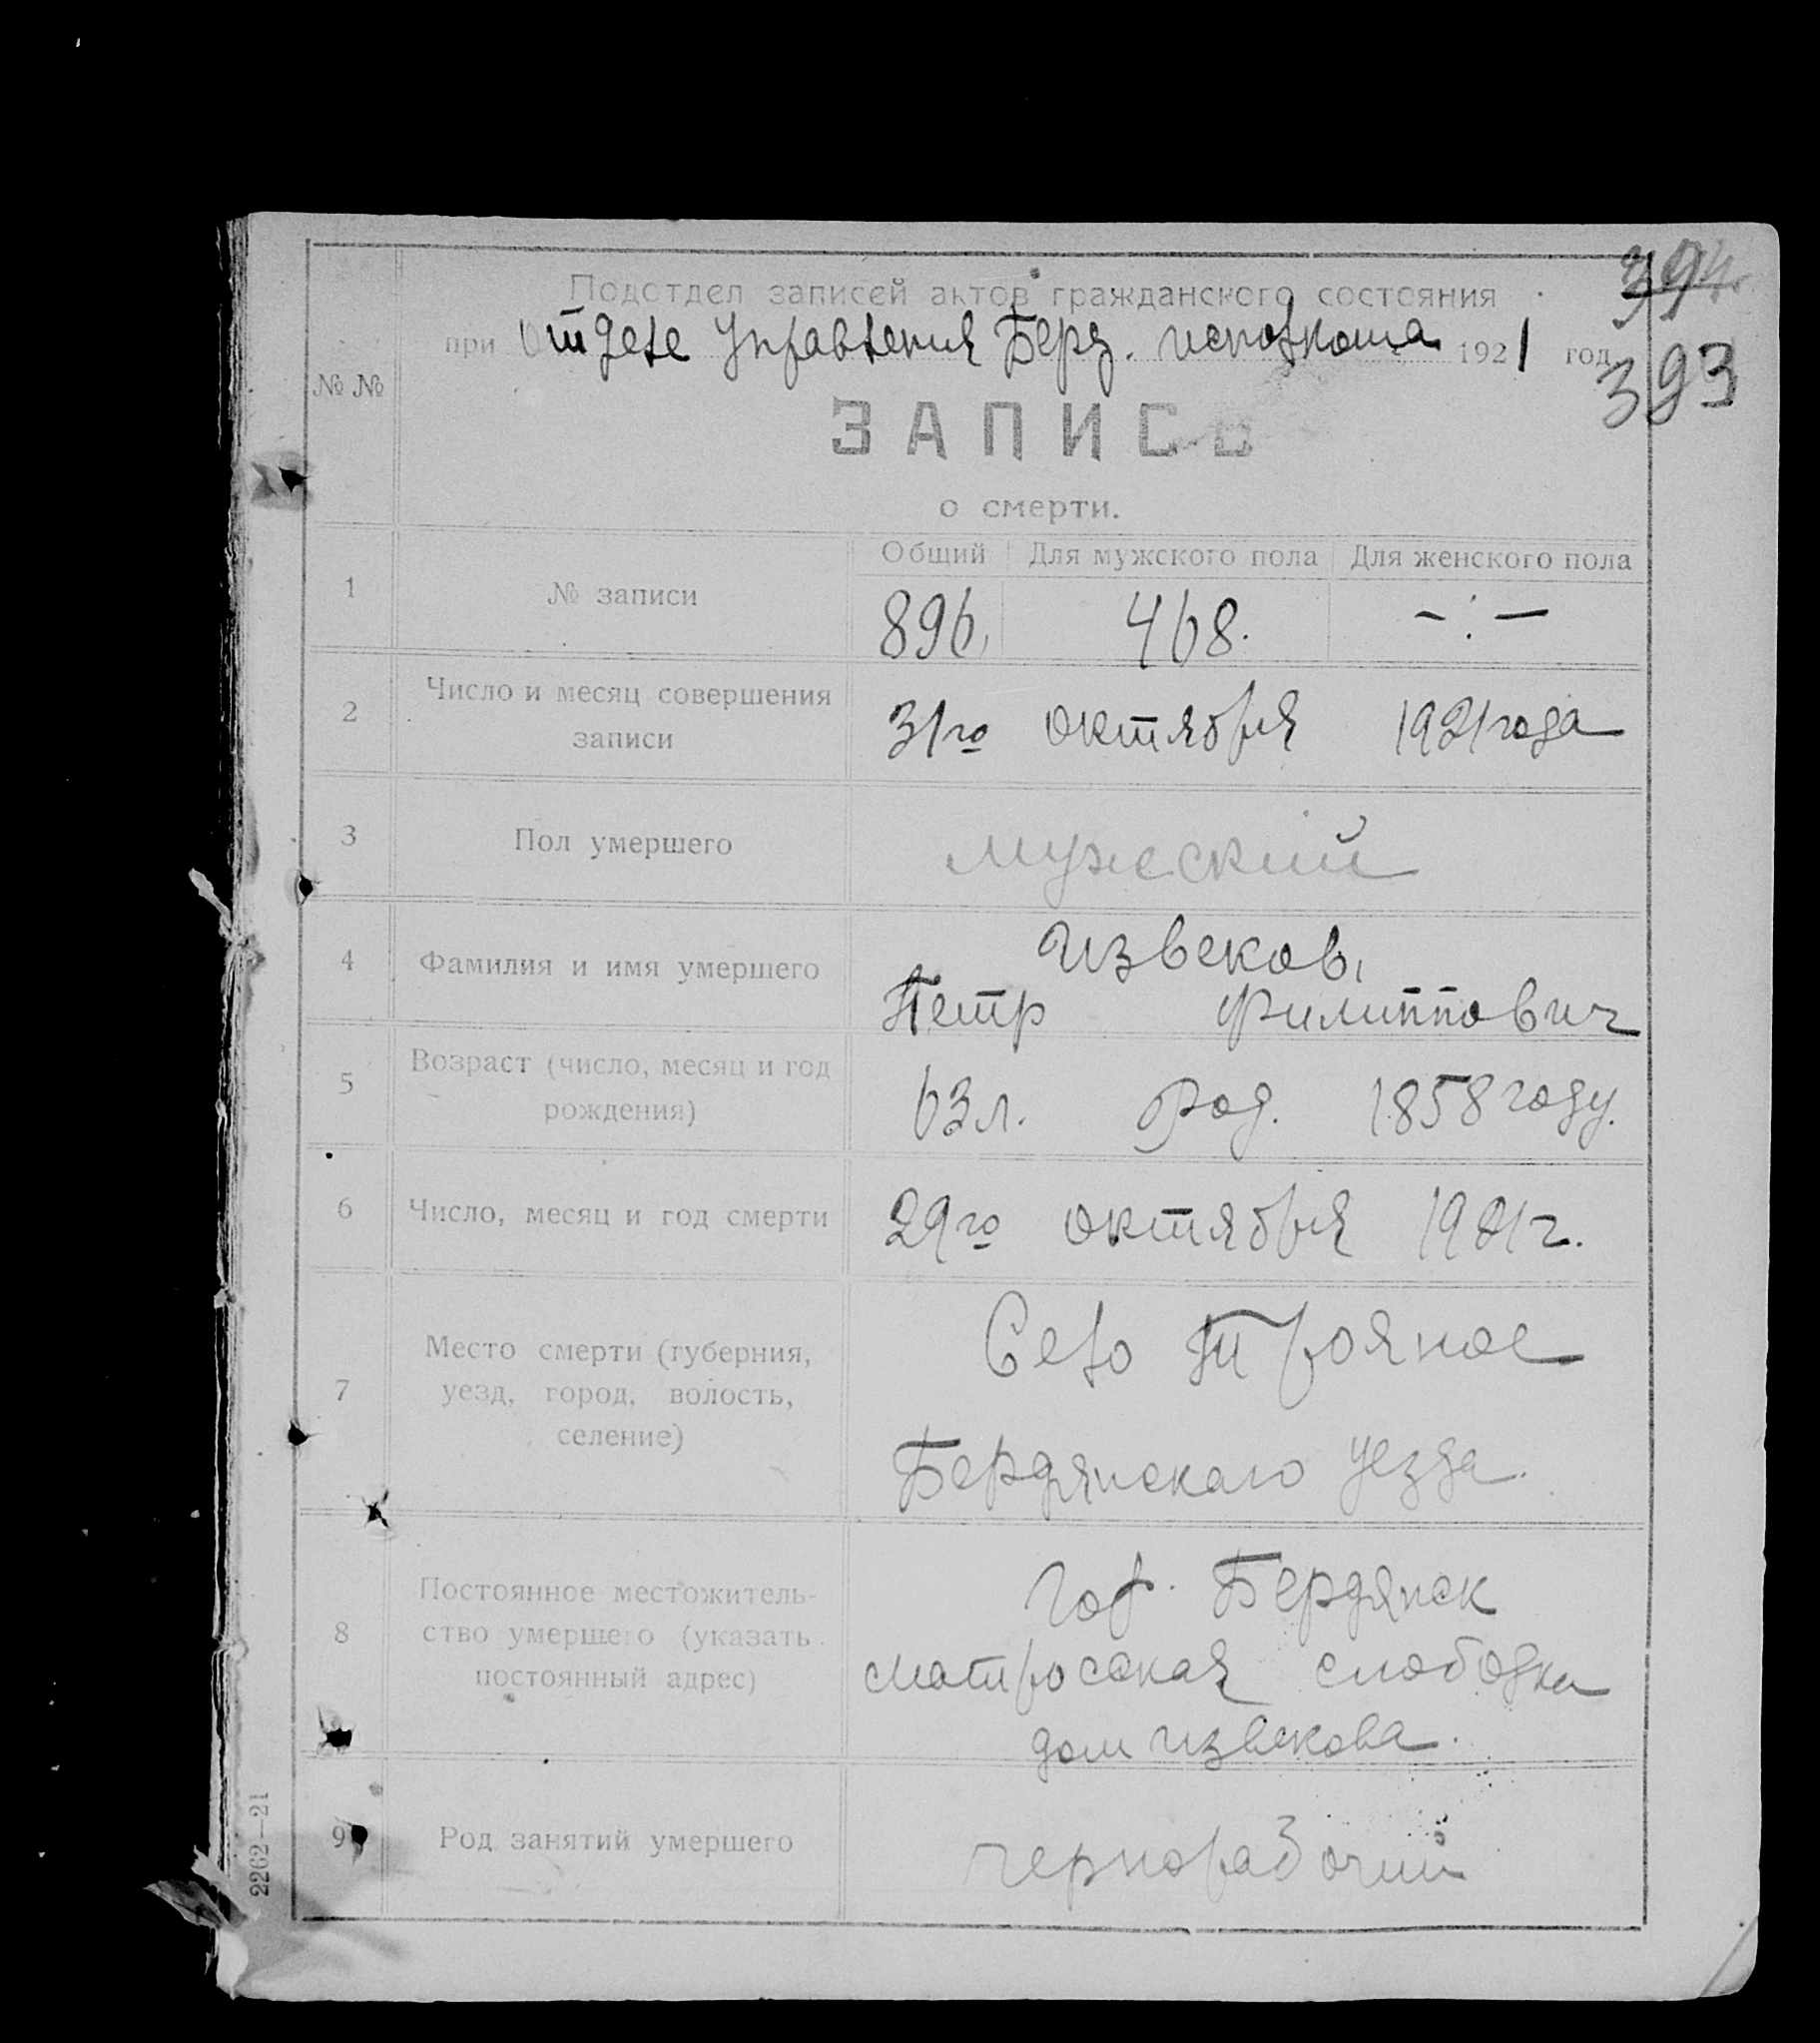 394
Подотдел записей актов гражданского состояния
при Отделе Управления Берд. исполкома 1921 год
393
№ №
ЗАПИСЬ
о смерти.
Общий Для мужского пола Для женского пола
1 № записи 896. 468. -:-
2 Число и месяц совершения записи 31го октября 1921 года
3 Пол умершего мужеский
4 Фамилия и имя умершего Извеков,
Петр Филиппович
5 Возраст (число, месяц и год рождения) 63 л. род. 1858 году.
6 Число, месяц и год смерти 29го октября 1921 г.
7 Место смерти (губерния, уезд, город, волость, селение) Село Трояное
Бердянского уезда.
8 Постоянное местожитель-
ство умершего (указать постоянный адрес) гор. Бердянск
матросская слободка
дом Извекова.
9 Род занятий умершего чернорабочий
2262—21